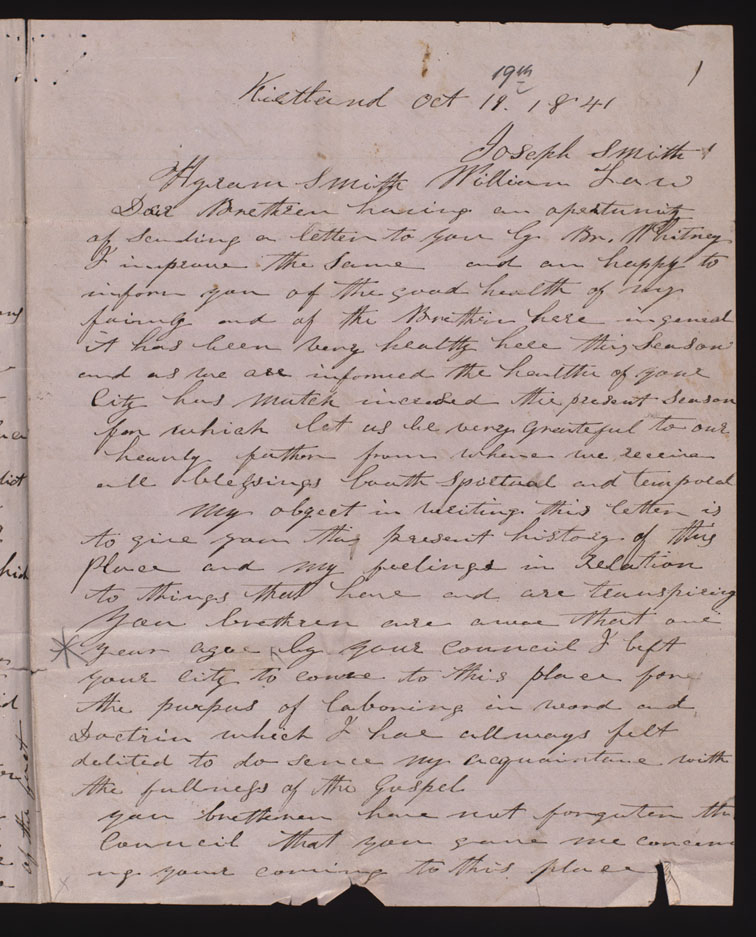 19th
1
Kirtland Oct 19. 1841
Joseph Smith
Hyram Smith William Law
Dear Brethren having an opertunity
of sending a letter to you by Br. Whitney
I improve the same and am happy to
inform you of the good health of my
faimly and of the Brethren here in general
it has been very healthy here this season
and as we are informed the health of your
City has mutch incresed the present season
for which let us be very grateful to our
heavnly father from whome we receive
all blessings boath spiritual and temporal
My object in writing this letter is
to give you the present history of this
place and my feelings in relation
to things that have and are transpiring
You brethren are awae that one
* year agoe by your council I left
your city to come to this place for
the purpus of laboring in word and
Doctrin which I hae allways felt
delited to do sence my acquaintance with
the fullness of the Gospel
you bretheren have not forguten the
Council that you gave me concern
ng your coming to this place
of the fact